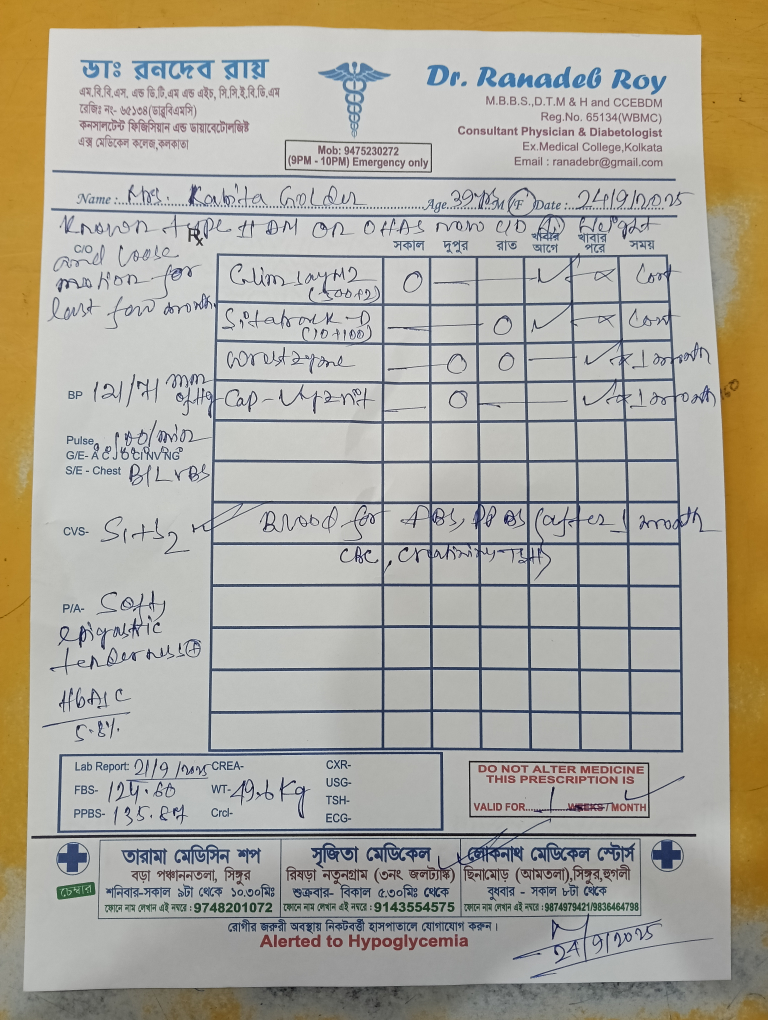 ডাঃ রনদেব রায়
এম.বি.বি.এস. এন্ড ডি.টি.এম এন্ড এইচ, সি.সি.ই.বি.ডি.এম
রেজিঃ নং- ৬৫১৩৪(ডাব্লুবিএমসি)
কনসালটেন্ট ফিজিসিয়ান এন্ড ডায়াবেটোলজিষ্ট
এক্স মেডিকেল কলেজ,কলকাতা
Mob: 9475230272
(9PM - 10PM) Emergency only
Dr. Ranadeb Roy
M.B.B.S.,D.T.M & H and CCEBDM
Reg.No. 65134(WBMC)
Consultant Physician & Diabetologist
Ex.Medical College,Kolkata
Email : ranadebr@gmail.com
Name: Mrs. Kabita Golder Age. 39 yrs M (F) Date: 24/9/2025
Known type II DM on OHAs now C/O Weight
C/O and loose
motion for
last few month
Rx
সকাল দুপুর রাত খাবার আগে খাবার পরে সময়
(500+2) Cont
(10+100) Cont
1 month
Cap - 1 month
BP 121/71 mm of Hg
Pulse 100/min
G/E-
S/E - Chest B/L VBS
CVS- S1+S2
Blood for FBS, PPBS (after 1 month
CBC, Creatinine, TSH)
P/A- Soft,
epigastric
tenderness (+)
HbA1C
5.8%
Lab Report: 21/9/2025 CREA- CXR-
FBS- 124.60 WT- 49.6 Kg USG-
TSH-
PPBS- 135.87 Crcl- ECG-
DO NOT ALTER MEDICINE
THIS PRESCRIPTION IS
VALID FOR 1 WEEKS/MONTH
চেম্বার
তারামা মেডিসিন শপ
বড়া পঞ্চাননতলা, সিঙ্গুর
শনিবার-সকাল ৯টা থেকে ১০.৩০মিঃ
ফোনে নাম লেখান এই নম্বরে : 9748201072
সৃজিতা মেডিকেল
রিষড়া নতুনগ্রাম (৩নং জলট্যাঙ্ক)
শুক্রবার- বিকাল ৫.৩০মিঃ থেকে
ফোনে নাম লেখান এই নম্বরে : 9143554575
লোকনাথ মেডিকেল স্টোর্স
ছিনামোড় (আমতলা),সিঙ্গুর,হুগলী
বুধবার - সকাল ৮টা থেকে
ফোনে নাম লেখান এই নম্বরে : 9874979421/9836464798
রোগীর জরুরী অবস্থায় নিকটবর্তী হাসপাতালে যোগাযোগ করুন।
Alerted to Hypoglycemia
24/9/2025